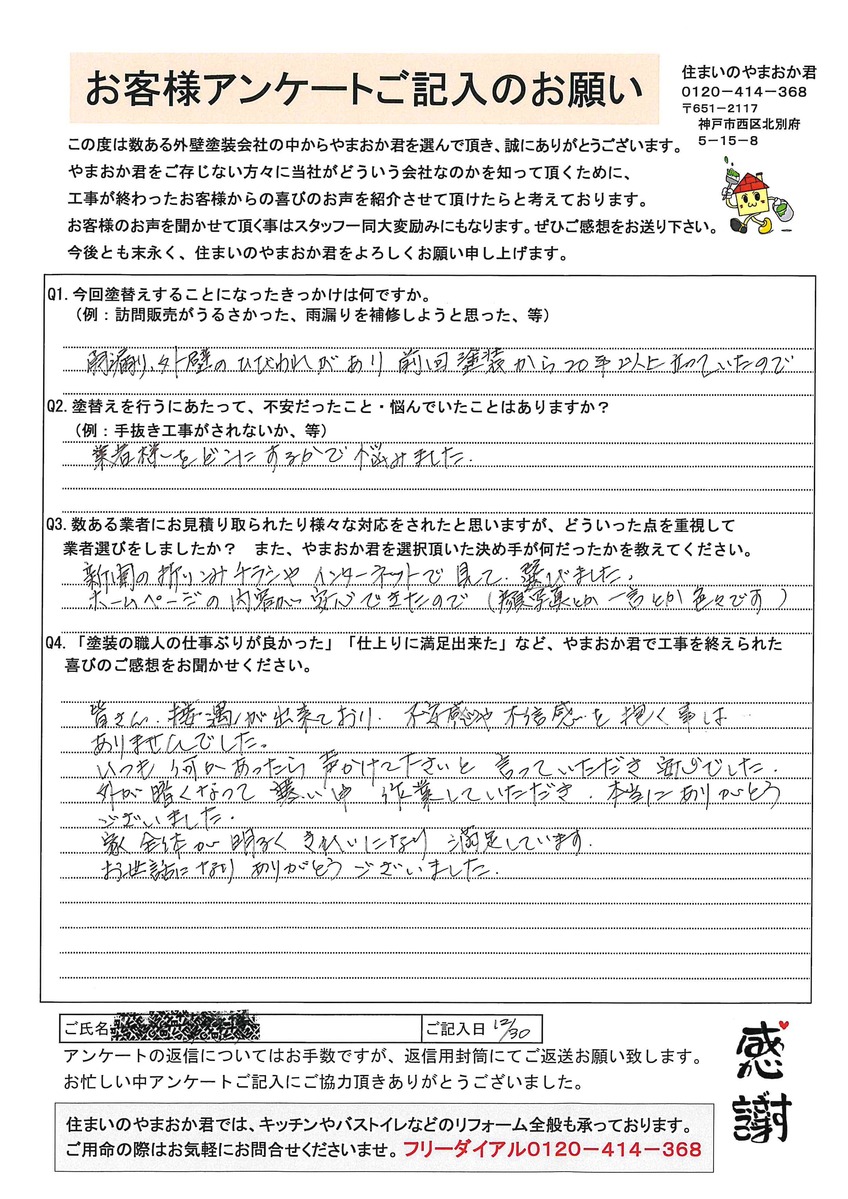 お客様アンケートご記入のお願い
住まいのやまおか君
0120－414－368
〒651－2117
神戸市西区北別府
5－15－8
この度は数ある外壁塗装会社の中からやまおか君を選んで頂き、誠にありがとうございます。
やまおか君をご存じない方々に当社がどういう会社なのかを知って頂くために、
工事が終わったお客様からの喜びのお声を紹介させて頂けたらと考えております。
お客様のお声を聞かせて頂く事はスタッフ一同大変励みにもなります。ぜひご感想をお送り下さい。
今後とも末永く、住まいのやまおか君をよろしくお願い申し上げます。
Q1. 今回塗替えすることになったきっかけは何ですか。
（例：訪問販売がうるさかった、雨漏りを補修しようと思った、等）
雨漏り、外壁のひびわれがあり 前回塗装から20年以上たっていたので
Q2. 塗替えを行うにあたって、不安だったこと・悩んでいたことはありますか？
（例：手抜き工事がされないか、等）
業者様をどこにするかで悩みました．
Q3. 数ある業者にお見積り取られたり様々な対応をされたと思いますが、どういった点を重視して
業者選びをしましたか？ また、やまおか君を選択頂いた決め手が何だったかを教えてください。
新聞の折りこみチラシやインターネットで見て．選びました．
ホームページの内容が安心できたので（顔写真とか一言とか色々です）
Q4. 「塗装の職人の仕事ぶりが良かった」「仕上りに満足出来た」など、やまおか君で工事を終えられた
喜びのご感想をお聞かせください。
皆さん．接遇が出来ており．不安感や不信感を抱く事は
ありませんでした。
いつも何かあったら声かけて下さいと言っていただき 安心でした．
外が暗くなって寒い中 作業していただき．本当にありがとう
ございました．
家全体が明るくきれいになり 満足しています．
お世話になりありがとうございました．
ご氏名
ご記入日 12/30
アンケートの返信についてはお手数ですが、返信用封筒にてご返送お願い致します。
お忙しい中アンケートご記入にご協力頂きありがとうございました。
感謝
住まいのやまおか君では、キッチンやバストイレなどのリフォーム全般も承っております。
ご用命の際はお気軽にお問合せくださいませ。フリーダイアル0120－414－368